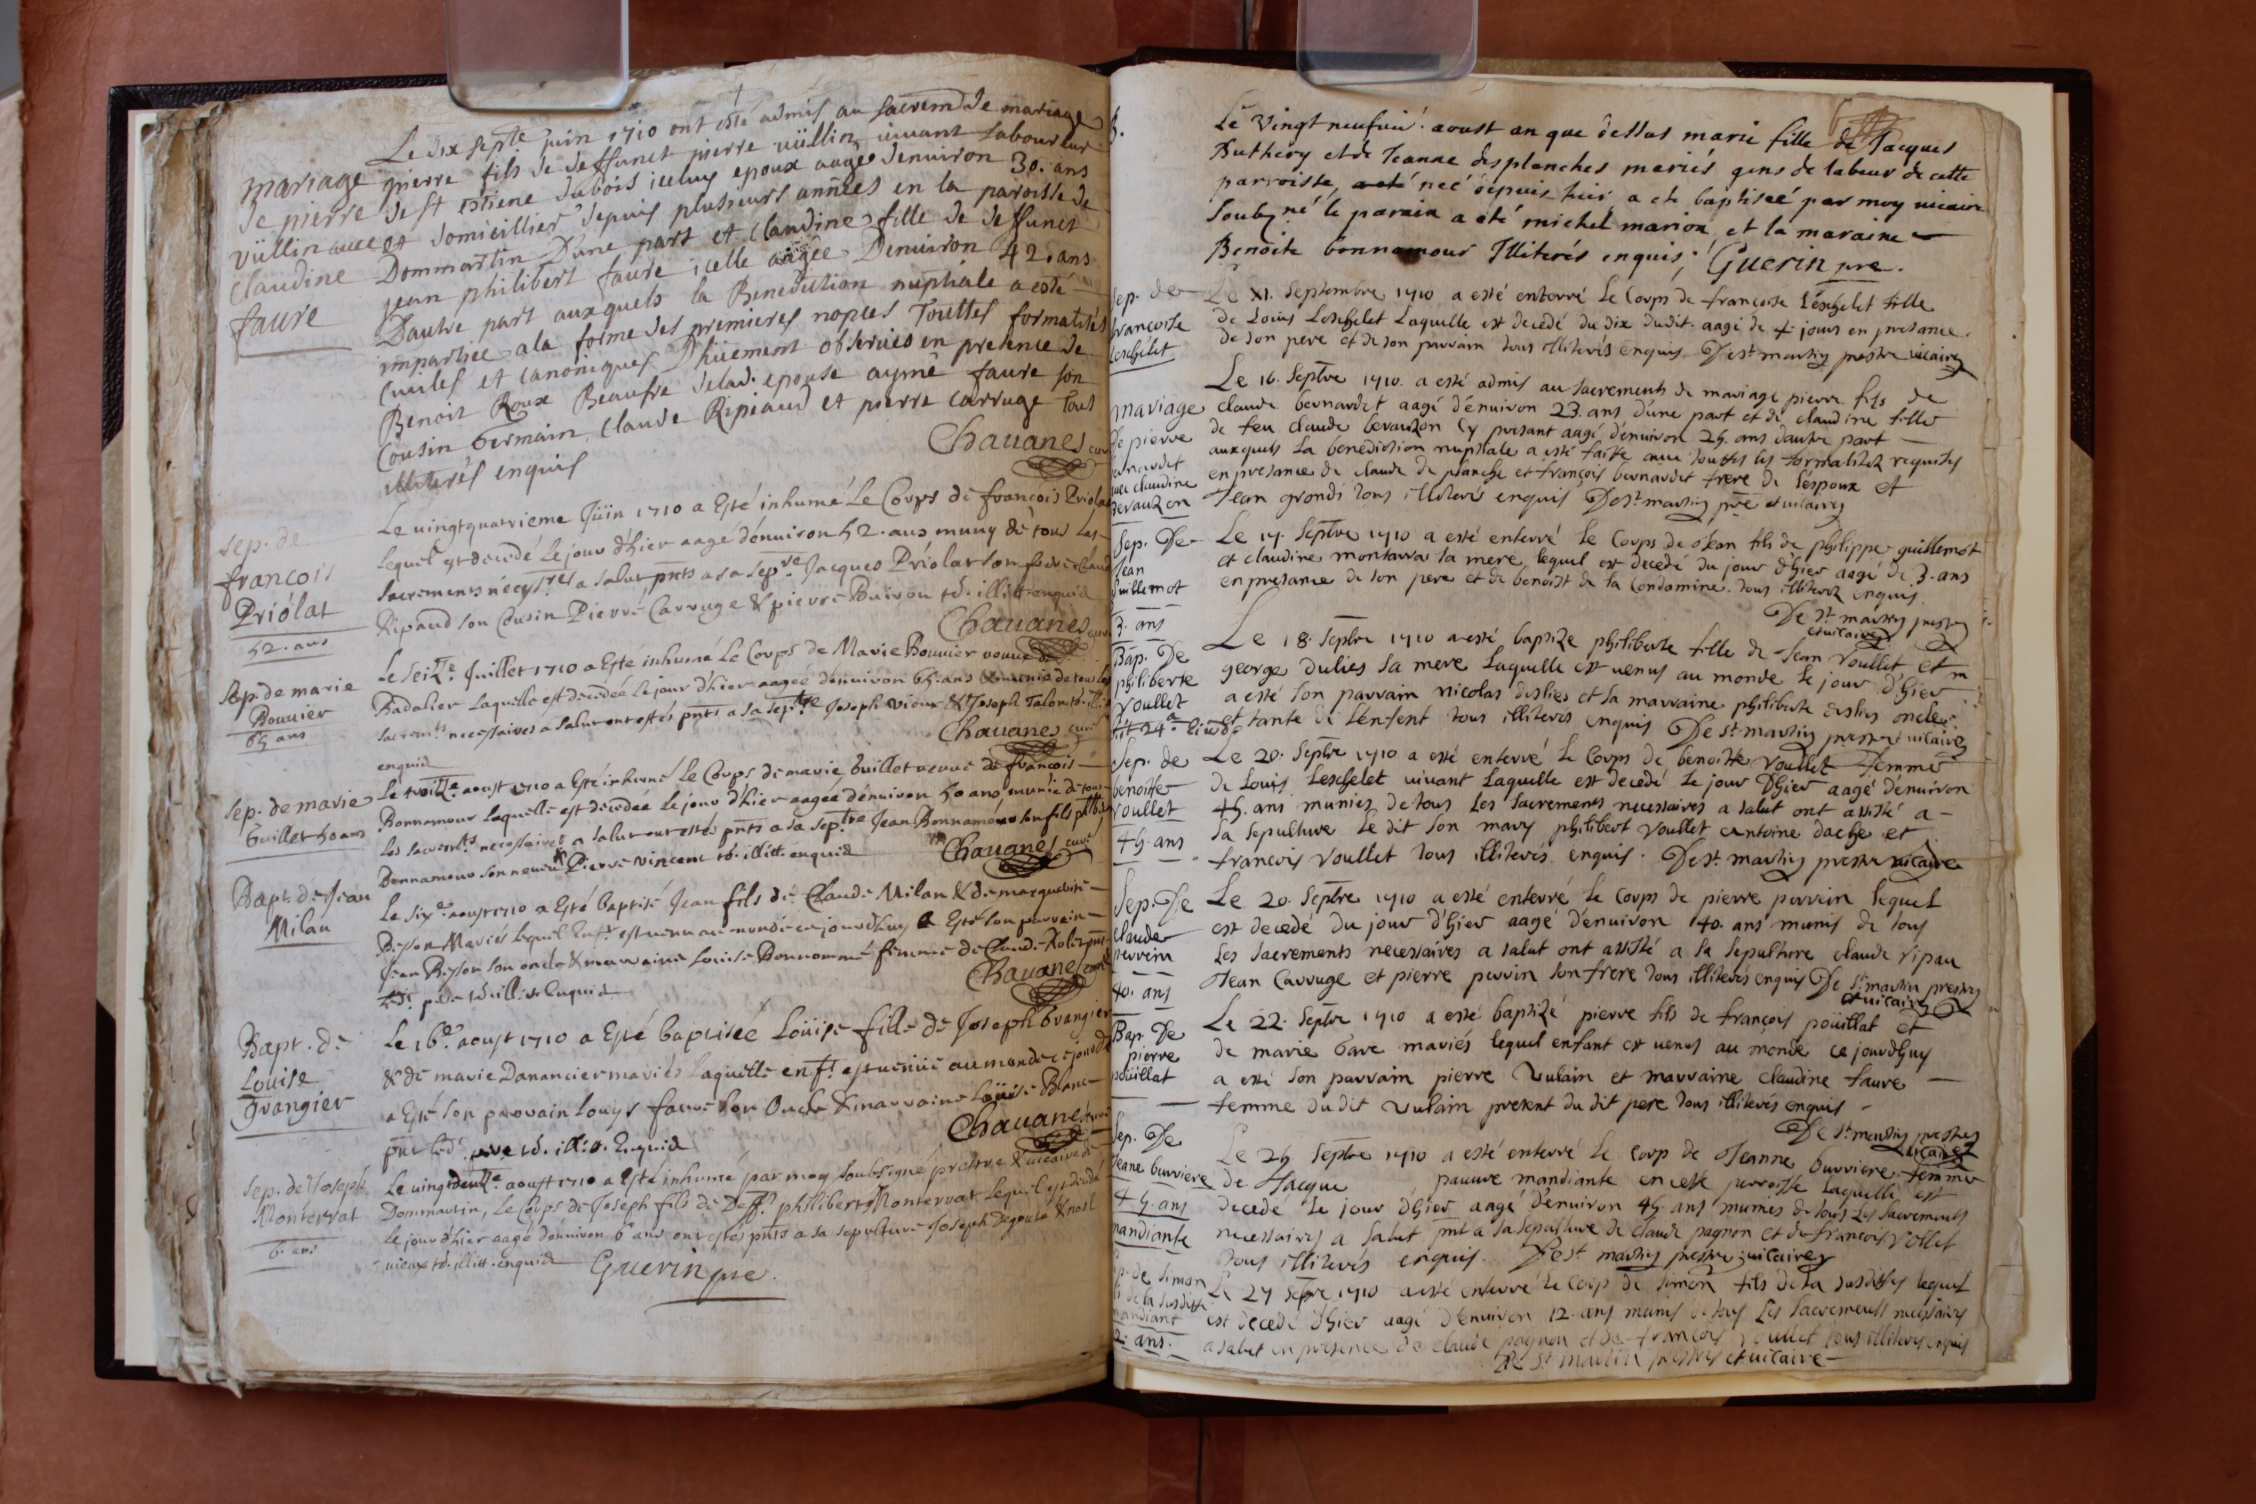 Le dix septe juin 1710 ont esté admis au sacrem de mariage
pierre fils de deffunct pierre vüllin vivant laboureur
de st estiene dubois iceluy epoux aagé denuiron 30. ans
et domicillier depuis plusieurs années en la paroisse de
Dommartin D'une part et Claudine fille de deffunct
jean philibert faure icelle aagée Denuiron 42 ans
Dautre part auxquels la Benediction nuptiale a esté
impartiee a la forme des premieres nopces Touttes formalités
Civiles et canoniques Dhuement observées en presence de
Benoit Roux Beaufre delad. epouse aymé faure son
Cousin Germain, Claude Ripiaud et pierre Carruge Tous
illiterés enquis
Chavanes curé
mariage
de pierre
vüllin avec
Claudine
faure
Le vingtquatrieme Jüin 1710 a Esté inhumé Le Corps de françois Priolat
Lequel est decedé le jour d'hier aagé d'enuiron 52. ans muny de tous Les
sacrements necess.res a salut pnts a sa sep.re Jacques Priólat son frere Claude
Ripaud son Cousin Pierre Carruge & pierre Buirou td. illitt. enquis
Chavanes curé
sep. de
francois
Priólat
52. ans
Le seiz.e Juillet 1710 a Esté inhumé Le Corps de Marie Bouvier veuve de
Badalier Laquelle est decedée le jour d'hier aagée d'enuiron 65. ans & munie de tous les
sacrem.ts necessaires a salut ont estés pnts a sa sep.re Joseph vieux & Joseph Talon td. illitt.
enquis
Chavanes curé
sep. de marie
Bouvier
65 ans
Le troiz.e aoust 1710 a Esté inhumé Le Corps de marie Guillot veuve de françois
Bonnamour Laquelle est decedée Le jour d'hier aagée d'enuiron 50 ans munie de tous
Les sacrem.ts necessaires a salut ont estés pnts a sa sep.re Jean Bonnamour son fils philib.
Bonnamour son neveu & Pierre vincent td. illitt. enquis
Chavanes curé
sep. de marie
Guillot 50 ans
Le six.e aoust 1710 a Esté baptisé Jean fils de Claude Milan & de marguerite
Besson Mariés lequel Enf.t est venu au monde ce jourdhuy a Esté son parrain
Jean Besson son oncle & marraine Louise Bonnamour femme de Claude pnt
led.t pere td. illit. Enquis
Chavanes curé
Bapt. de Jean
Milan
Le 16.e aoust 1710 a Esté baptisée Loüise fille de Joseph Grangier
& de marie Danancier mariés Laquelle enf.t est venüe au monde ce jourdhuy
a Esté son parrain Louys faure son Oncle & marraine Loüise Blanc
pnt led. pere td. illit. Enquis
Chavanes curé
Bapt. de
Louise
Grangier
Le vingtdeuz.e aoust 1710 a Esté inhumé par moy soubsigné prestre & vicaire de
Dommartin, Le Corps de Joseph fils de Deff.t philibert Monterrat Lequel est decedé
le jour d'hier aagé d'enuiron 6 ans ont estés pnts a sa sepulture Joseph Degouté & noel
vieux td. illitt. enquis Guerin pre.
sep. de Joseph
Monterrat
6. ans
Le Vingt neufvié. aoust an que dessus marie fille de Jacques
Buthery et de Jeanne desplanches mariés gens de labeur de cette
parroisse, neé depuis hier, a ete baptiseé par moy vicaire
soubzné le parain a été michel marion et la maraine
Benoite bonnamour Illiterés enquis, Guerin pre.
Le XI. Septembre 1710 a esté enterré Le Corps de francoise Leschelet fille
de Louis Leschelet Laquelle est decedé du dix dudit. aagé de 4. jours en presance
de son pere et de son parrain tous illiterés enquis De st martin prestre vicaire
sep. de
francoise
Leschelet
Le 16. Septbre 1710. a esté admis au sacrements de mariage pierre fils de
claude bernardet aagé d'enuiron 23. ans d'une part et de claudine fille
de feu claude bevauzon Cy presant aagé d'enuiron 25. ans dautre part
auxquels La benediction nuptiale a esté faite avec touttes les formalitez requises
en presance de claude de planche et françois bernardet frere de l'espoux et
Jean grondi tous illiterés enquis De st martin pre et vicaire
mariage
de pierre
bernardet
avec claudine
bevauzon
Le 17. Septbre 1710 a esté enterré le Corps de Jean fils de philippe guillemot
et claudine montarra sa mere lequel est decedé du jour d'hier aagé de 3. ans
en presance de son pere et de benoist de la condamine. tous illiterez enquis.
De st martin prestre
et vicaire
Sep. De
Jean
Guillemot
3. ans
Le 18. Septbre 1710 a esté baptize philiberte fille de Jean Voullet et
george dulies sa mere Laquelle est venus au monde le jour d'hier
a esté son parrain nicolas deslies et sa marraine philiberte deslies oncle
et tante de L'enfent tous illiterés enquis De st martin prestre et vicaire
Bap. De
philiberte
Voullet
Le 20. Septbre 1710 a esté enterré le Corps de benoitte Voullet femme
de Louis Leschelet vivant Laquelle est decedé le jour D'hier aagé d'enuiron
45. ans munies de tous les sacrements necessaires a salut ont assisté a
sa sepulture le dit son mary philibert Voullet antoine dache et
francois Voullet tous illiterés enquis. De st. martin prestre vicaire
Sep. de
benoitte
Voullet
45. ans
Le 20. Septbre 1710 a esté enterré le Corps de pierre perrein lequel
est decedé du jour d'hier aagé d'enuiron 40. ans munis de tous
les sacrements necessaires a salut ont assisté a sa sepulture claude ripau
Jean Carruge et pierre perrin son frere tous illiterés enquis De St martin prestre
et vicaire
Sep. De
Claude
perrein
40. ans
Le 22. Septbre 1710 a esté baptizé pierre fils de françois poüillat et
de marie Gare mariés lequel enfant est venus au monde ce jourdhuy
a esté son parrain pierre Vulain et marraine claudine faure
femme du dit Vulain present du dit pere tous illiterés enquis
De st martin prestre
vicaire
Bap. De
pierre
poüillat
Le 25 Septbre 1710 a esté enterré le Corp de Jeanne burriere femme
de Jacque pauvre mandiante en cette parroisse Laquelle est
decedé le jour d'hier aagé d'enuiron 45. ans munies de tous Les sacrements
necessaires a salut pnt a sa sepulture de claude pagnon et de francois Vollet
tous illiterés enquis. De st martin prestre vicaire
Sep. De
Jeane burriere
45. ans
mandiante
Le 27 Septbre 1710 a esté enterré le Corp de simon fils de la susdittes lequel
est decedé d'hier aagé d'enuiron 12. ans munis de tous Les sacrements necessaires
a salut en presence de claude pagnon et de francois Voullet tous illiterés enquis
De st martin prestre et vicaire
Sep. de simon
de la susditte
mandiant
12. ans.